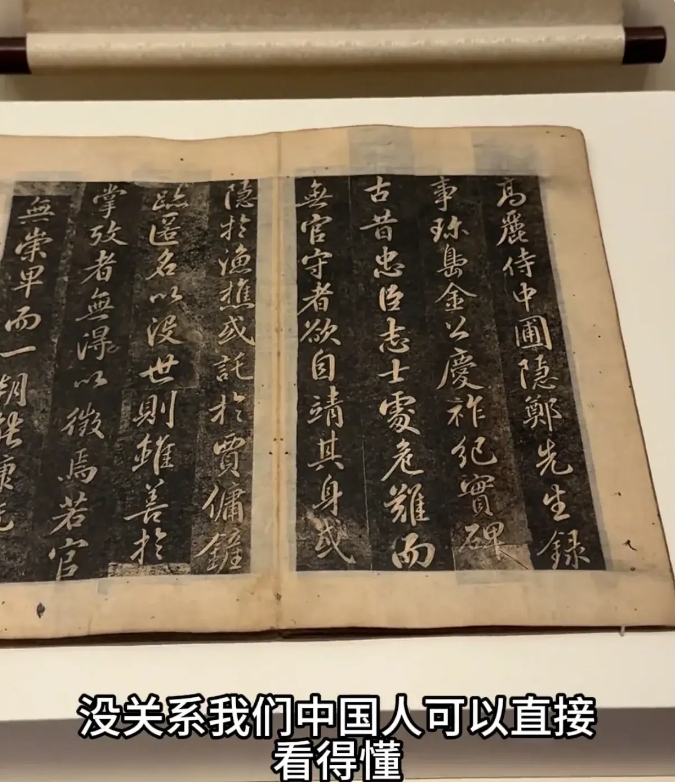 高麗侍中圃隐鄭先生録
事珎島金公慶祚紀實碑
古昔忠臣志士處危難而
無官守者欲自靖其身或
隠於漁樵或託於賈傭雖
臨匿名以没世則雖善於
掌攷者無淂以徵焉若官
無崇卑而一朝
没关系我们中国人可以直接
看得懂